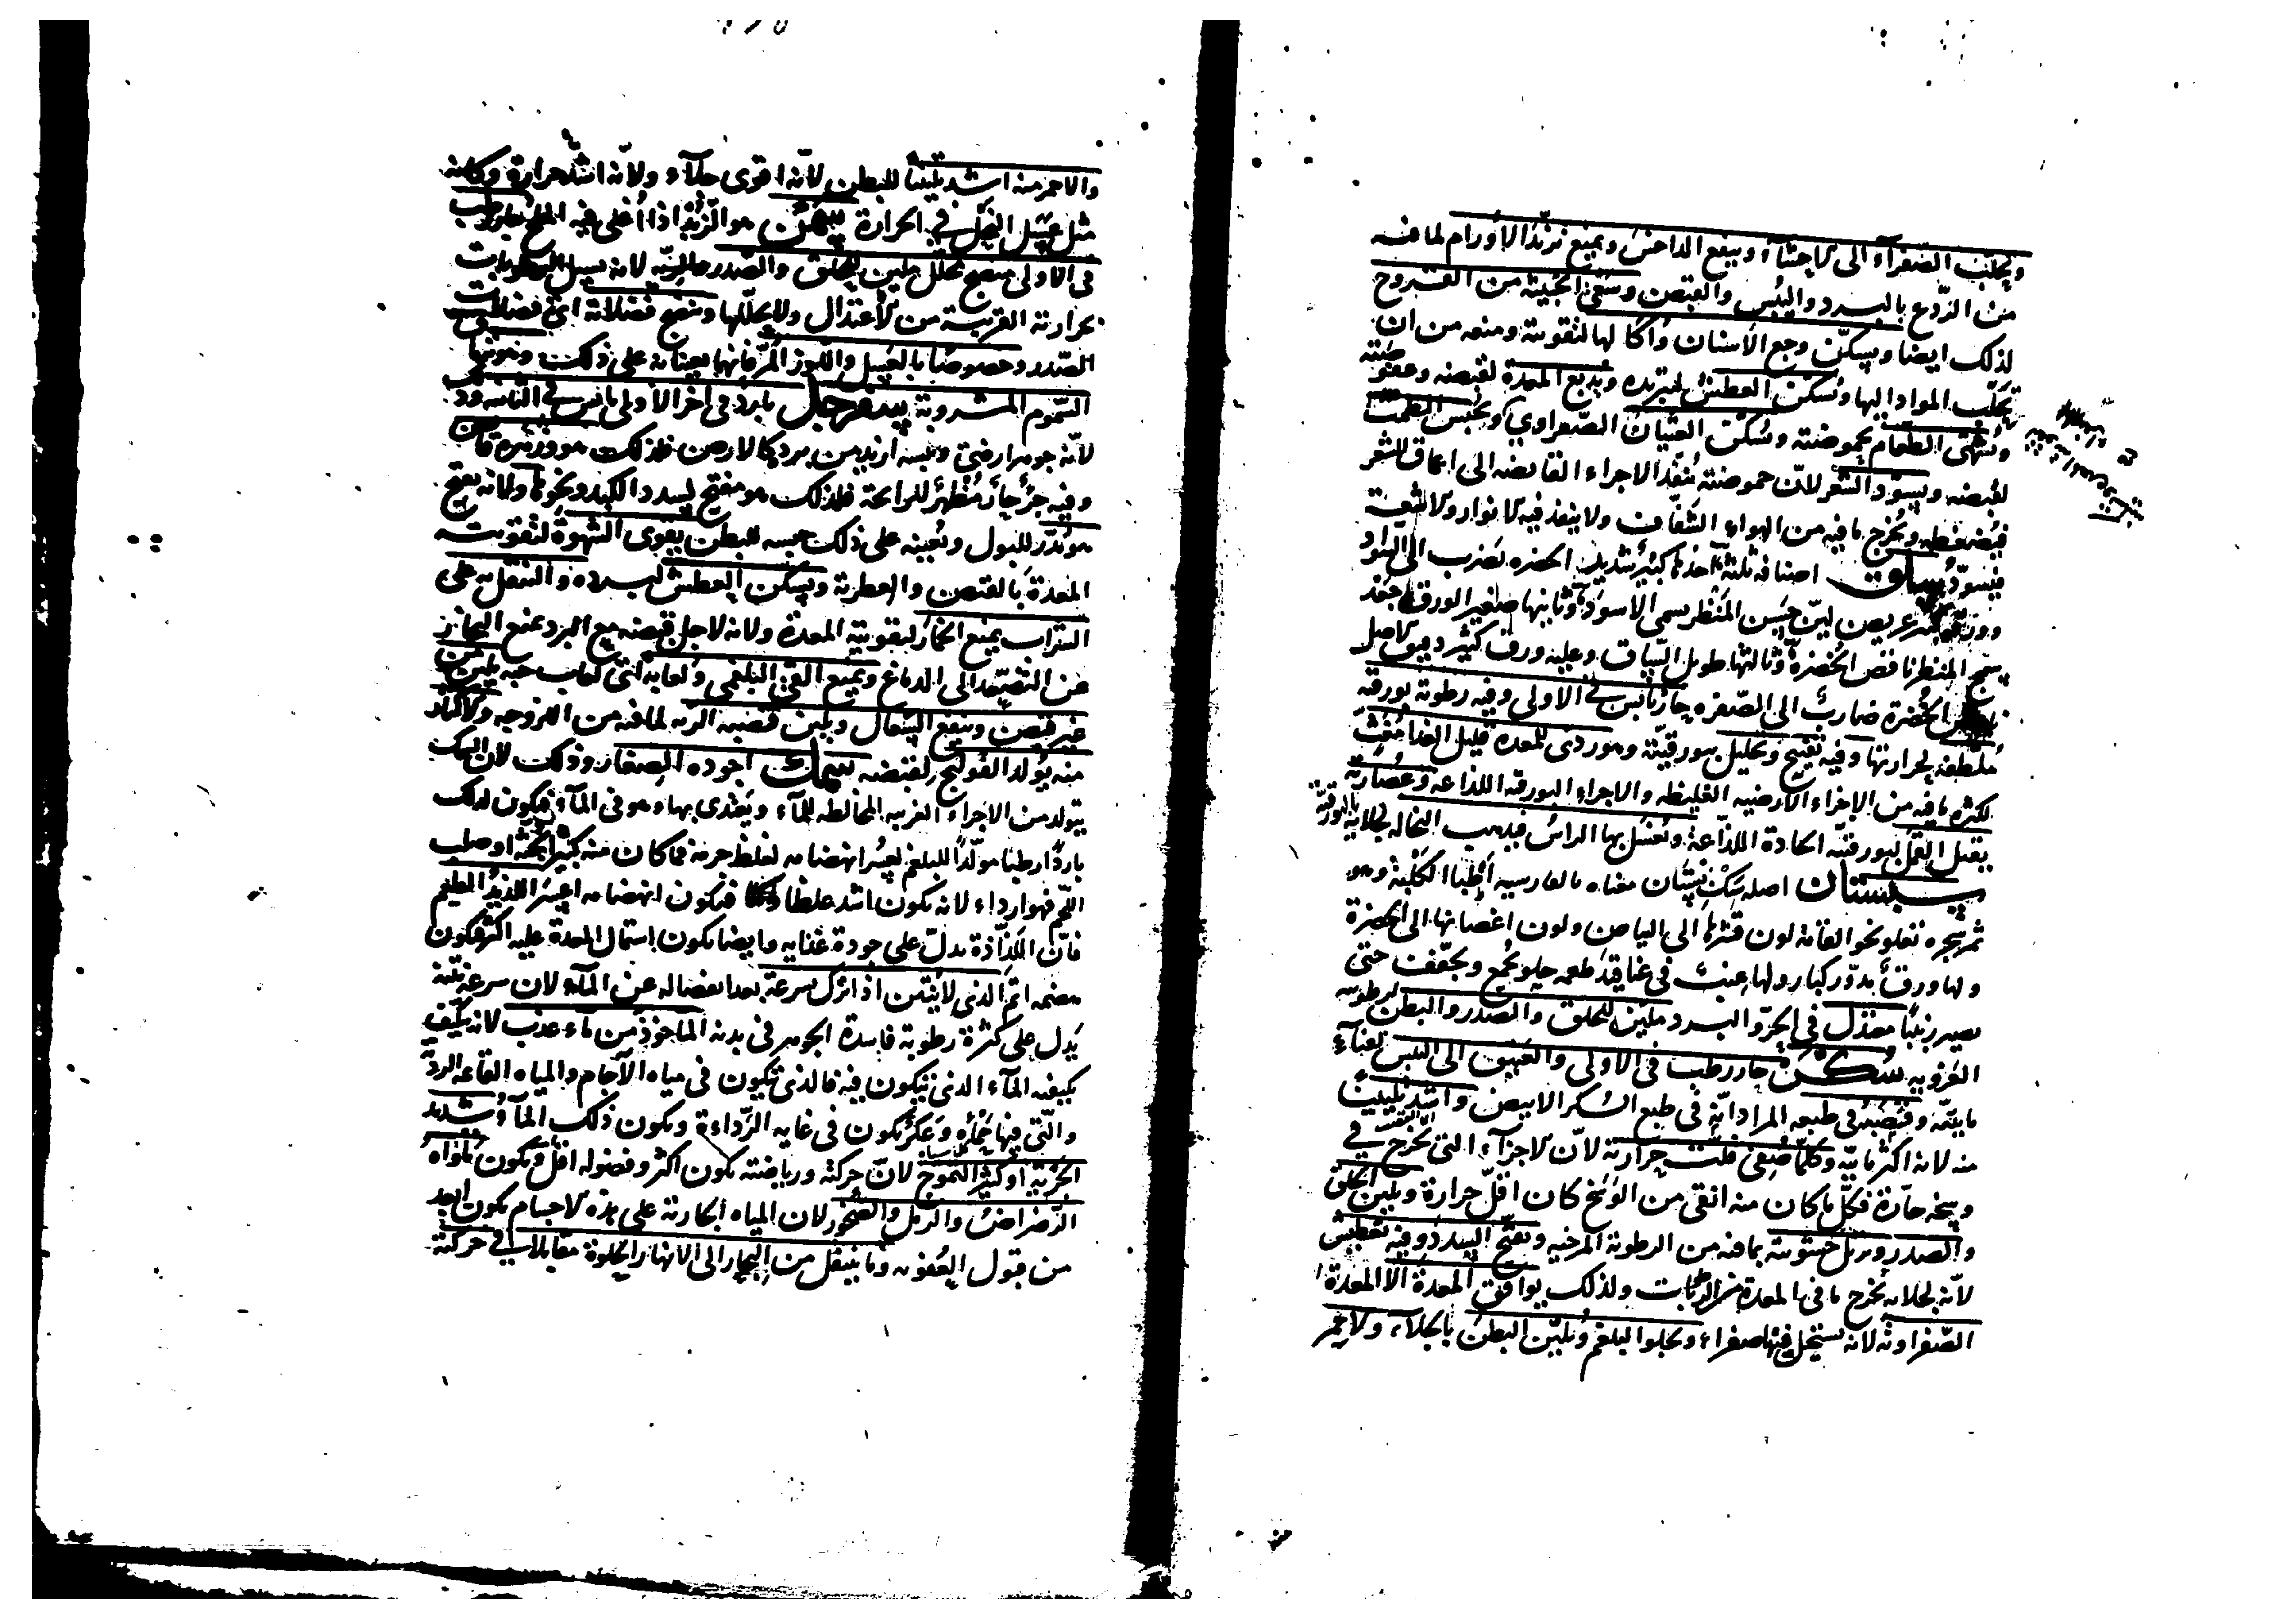 ويجلب الصفراء الى الاحشاء وينفع الداحس ويمنع تزيّد الاورام لما فيه
من الرّدع بالبرد واليبس والقبض وسعى الخبيثة من القروح
لذلك ايضا ويسكّن وجع الاسنان واكالها لتقويته ومنعه من ان
تجلّب المواد اليها ويسكّن العطش لتبريده ويدبغ المعدة لقبضه وعفوصته
ويشهّى الطعام بحموضته ويسكن الغثيان الصفراوي ويحبس الطمث
لقبضه ويسوّد الشعر لانّ حموضته ينفّذ الاجزاء القابضه الى اعماق الشعر
فيضغطه ويخرج ما فيه من الهواء الشفّاف ولا ينفذ فيه الانوار والاشعة
فيسودّ سلق اصنافه ثلثة احدها كبير شديد الخضره يضرب الى السواد
وورقه عريض ليّن حسن المنظر يسمى الاسود وثانيها صغير الورق جعد
سمج المنظر ناقص الخضرة وثالثها طويل الساق وعليه ورق كثير دقيق الاصل
الخضرة ضارب الى الصفره حارّ يابس في الاولى وفيه رطوبة بورقيه
ملطفه لحرارتها وفيه تفتيح وتحليل ببورقيّته وهو ردى للمعدة قليل الغذا مغث
لكثره ما فيه من الاجزاء الارضيه الغليظه والاجزاء البورقيه اللذاعه وعصارته
يقتل القمل لبورقيته الحادة اللذّاعة ويغسل بها الراس فيذهب النخاله بجلائه بالبورقية
سبستان اصله سك پستان معناه بالفارسيه اطباء الكلبة وهو
ثمر شجره تعلو نحو القامة لون قشرها الى البياض ولون اغصانها الى الخضرة
ولها ورق مدوّر كبار ولها عنب في عناقيد طعمه حلو يجمع ويجفّف حتى
يصير زبيبا معتدل في الحرّ والبرد ملين للحلق والصدر والبطن لرطوبته
الغرويه سكر حار رطب في الاولى والعتيق الى اليبس لفناء
مائيّته وقصبه في طبعه المراد انّه في طبع السكر الابيض واشد تليينا
منه لانه اكثر مائيّه وكلما صفى قلّت حرارته لانّ الاجزاء التي تخرج في
وسخه حارّة فكلّ ما كان منه انقى من الوسخ كان اقلّ حرارة ويلين الحلق
والصدر ويزيل خشونته بما فيه من الرطوبة المرخيه ويفتح السدد وفيه تعطيش
لانّه بجلائه يخرج ما في المعدة من الرطوبات ولذلك يوافق المعدة الا المعدة
الصفراويه لانه يستحيل فيها صفراء ويجلوا البلغم ويليّن البطن بالجلاء والاحمر
والاحمر منه اشد تليينا للبطن لانّه اقوى جلاء ولانّه اشد حرارة وكانه
مثل عسل النحل في الحرارة سمن هو الزبد اذا اغلى فيه الملح حار رطب
في الاولى منضج محلّل ملين للحلق والصدر لانه يسيل الرطوبات
بحرارته القريبة من الاعتدال ولا يحلّلها وينضج فضلاته اى فضلات
الصّدر وخصوصا بالعسل واللوز المرّ فانهما يعينانه على ذلك وهو ترياق
السّموم المشروبة سفرجل بارد في آخر الاولى يابس في الثانيه
لانّه جوهر ارضى ويبسه ازيد من برده كالارض فلذلك هو وزهره قابض
وفيه جزء حارّ مظهر للرائحة فلذلك هو مفتح لسدد الكبد ونحوها ولانه يفتح
هو مدرّ للبول ويعينه على ذلك حبسه للبطن يقوى الشهوة لتقويته
المعدة بالقبض والعطرية ويسكن العطش لبرده والتنقل به على
الشراب يمنع الخمار لتقويته المعدة ولانه لاجل قبضه مع البرد يمنع البخار
عن التصعّد الى الدماغ ويمنع القئ البلغمى ولعابه اى لعاب حبه يلين من
غير قبض وينفع السعال ويلين قصبه الريه لما فيه من اللزوجه والاكثار
منه يولد القولنج لقبضه سمك اجوده الصغار وذلك لان السمك
يتولد من الاجزاء الغريبه المخالطه للماء ويغتذى بها وهو في الماء فيكون لذلك
باردا رطبا مولّدا للبلغم لعسر انهضامه لغلظ جرمه فما كان منه كبير الجثة او صلب
اللحم فهو ارداء لانه يكون اشد غلظا فيكون انهضامه اعسر اللذيذ الطعم
فانّ اللذاذة يدلّ على جودة غذائه وايضا يكون اشتمال المعدة عليه اكثر فيكون
هضمه اتمّ الذى لا ينتن اذا ترك سرعة بعد انفصاله عن الماء لان سرعة نتنه
يدل على كثرة رطوبة فاسدة الجوهر في بدنه الماخوذ من ماء عذب لانه يتكيف
بكيفيه الماء الذى يتكون فيه فالذى يتكون في مياه الآجام والمياه القاعه الرديّة
والّتى فيها حمأه وعكر يكون في غايه الرّداءة ويكون ذلك الماء شديد
الجريه او كثير التموج لانّ حركته ورياضته يكون اكثر وفضوله اقل ويكون مأواه
الرّضراض والرمل والصخور لان المياه الجارية على هذه الاجسام يكون ابعد
من قبول العفونه وما ينتقل من البحار الى الانهار الحلوة مقابلا في حركته